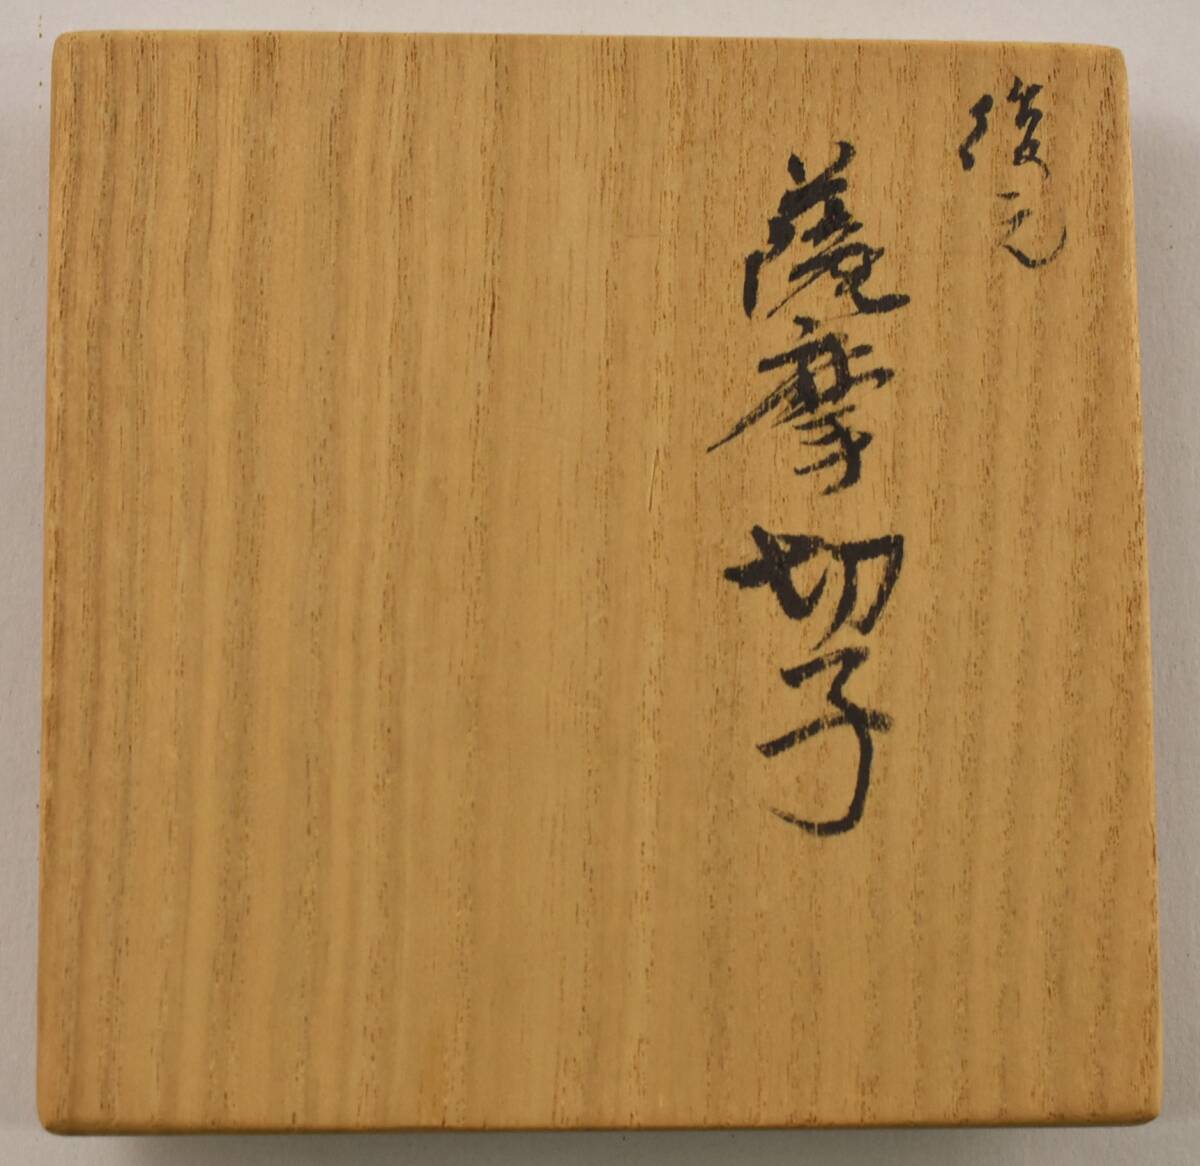 復元
薩摩切子